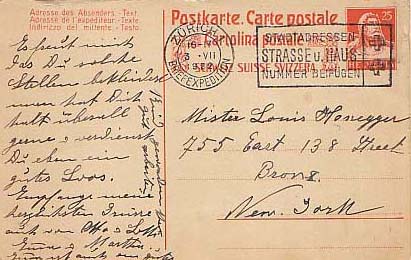 Adresse des Absenders. - Text
Adresse de l'expéditeur. - Texte
Indirizzo del mittente. - Testo
Postkarte. Carte postale
Cartolina postale
SUISSE SVIZZERA
25
ZÜRICH
16-
3·VII
BRIEFEXPEDITION
STADTADRESSEN
STRASSE u. HAUS-
NUMMER BEIFÜGEN
Es freut mich
das Du solche
Stellen bekleidest
man hat Dich
halt überall
gerne & verdienst
Du eben ein
gutes Loos.
Empfange meine
herzlichsten Grüsse
auch von Otto &
Emma & Martha.
Mister Louis Honegger
755 East 138 Street
Bronx
New York